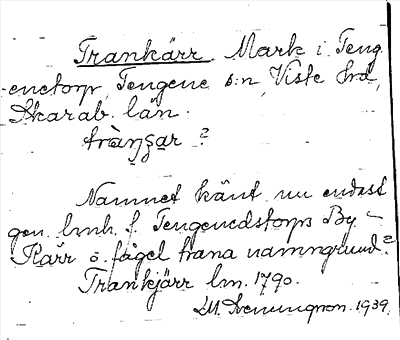 Trankärr. Mark i Teng
enetorp, Tengene s:n, Viste hd,
Skarab. län.
Namnet känt nu endast
gen. lmh. f. Tengenestorps By –
Kärr o. fågel trana namngrund?
Trankjärr lm. 1790.
1939.